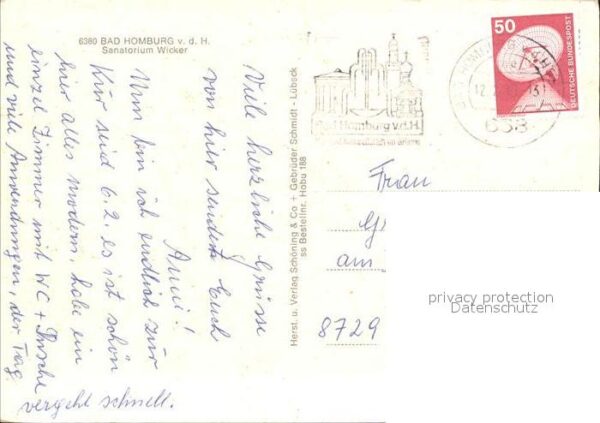 6380 BAD HOMBURG v. d. H.
Sanatorium Wicker
Viele herzliche Grüsse
von hier sendet Euch
Anni!
Nun bin ich endlich zur
Kur seid 6.2. es ist schön
hier alles modern, habe ein
einzel Zimmer mit WC + Dusche
und viele Anwendungen, der Tag
vergeht schnell.
Herst. u. Verlag Schöning & Co + Gebrüder Schmidt - Lübeck
ss Bestellnr. Hobu 188
Bad Homburg v.d.H.
50
DEUTSCHE BUNDESPOST
12
638
Frau
G
am
8729
privacy protection
Datenschutz